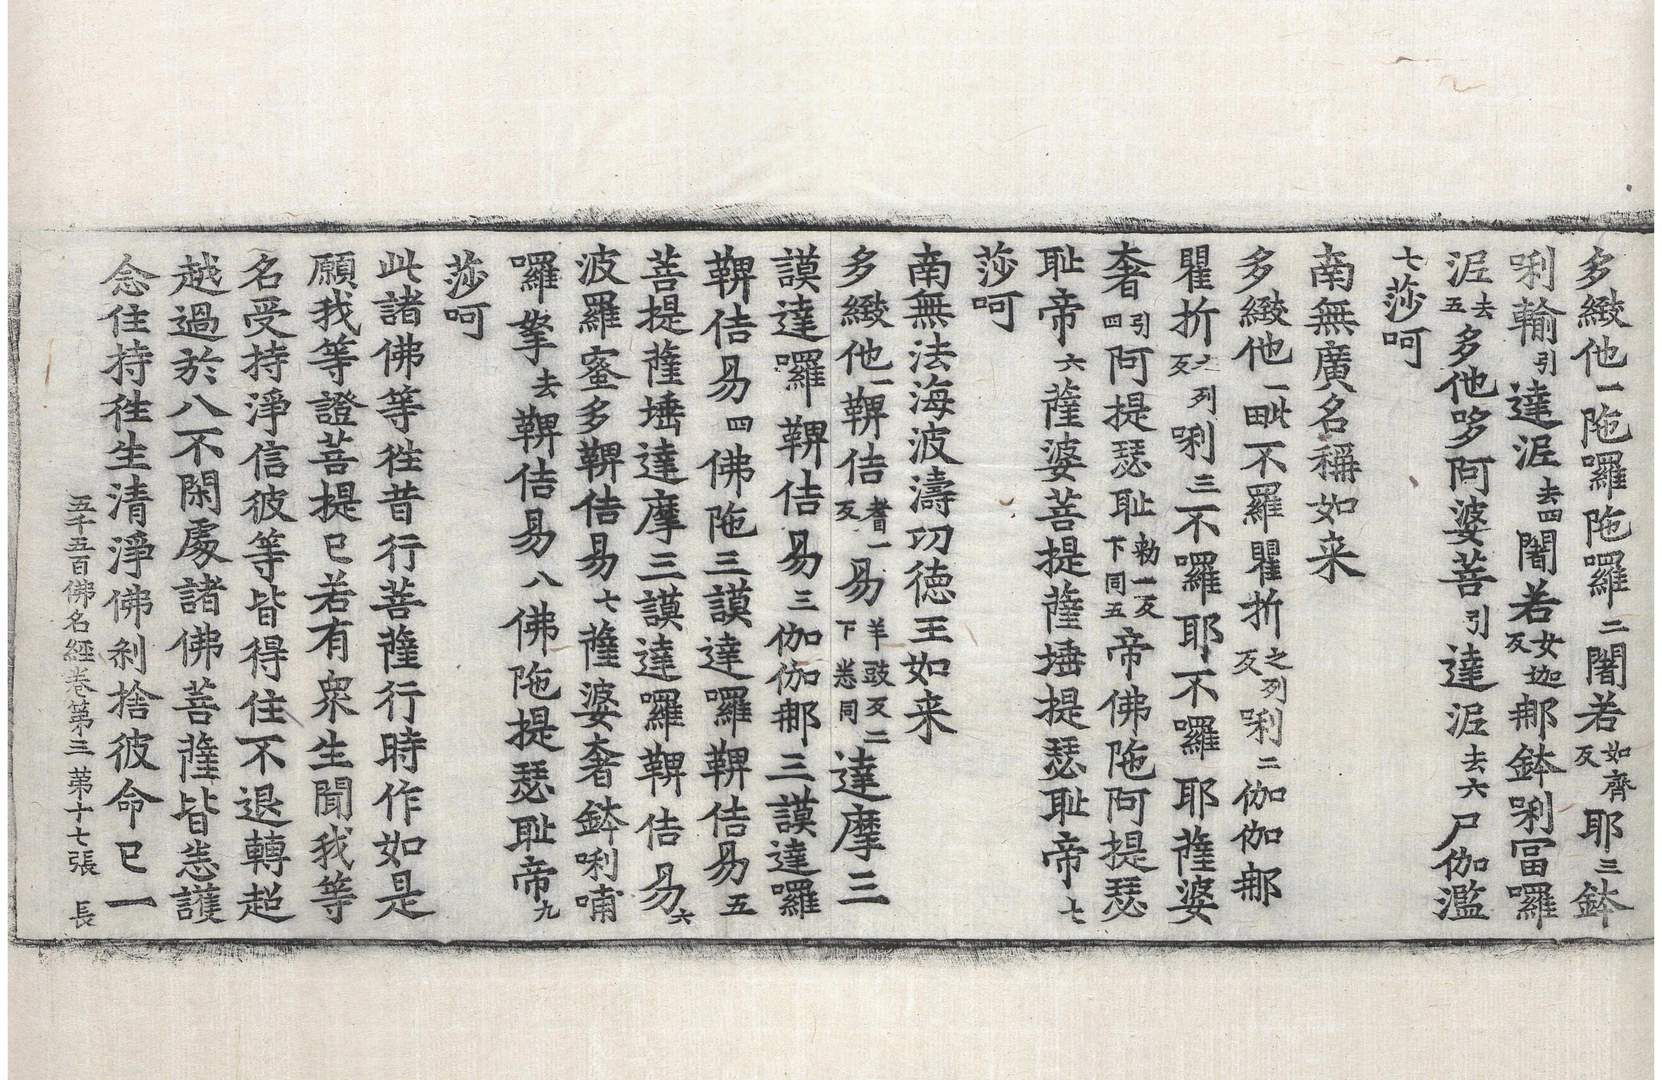 多緻他一陁囉陁囉二闍若如齊反耶三鉢
唎輸引達泥去四闍若女迦反𨚗鉢唎富囉
泥去五多他哆阿婆菩引達泥去六尸伽濫
七莎呵
南無廣名稱如来
多緻他一毗不羅瞿折之列反唎二伽伽𨚗
瞿折之列反唎三不囉耶不囉耶薩婆
奢引四阿提瑟耻勑一反下同五帝佛陁阿提瑟
耻帝六薩婆菩提薩埵提瑟耻帝七
莎呵
南無法海波濤功徳王如来
多緻他一鞞佶耆一反易羊豉反二下悉同達摩三
謨達囉鞞佶易三伽伽𨚗三謨達囉
鞞佶易四佛陁三謨達囉鞞佶易五
菩提薩埵達摩三謨達囉鞞佶易六
波羅蜜多鞞佶易七薩婆奢鉢唎哺
囉拏去鞞佶易八佛陁提瑟耻帝九
莎呵
此諸佛等徃昔行菩薩行時作如是
願我等證菩提已若有衆生聞我等
名受持淨信彼等皆得住不退轉超
越過於八不閑處諸佛菩薩皆悉護
念住持徃生清淨佛刹捨彼命已一
五千五百佛名經卷第三 苐十七張 長